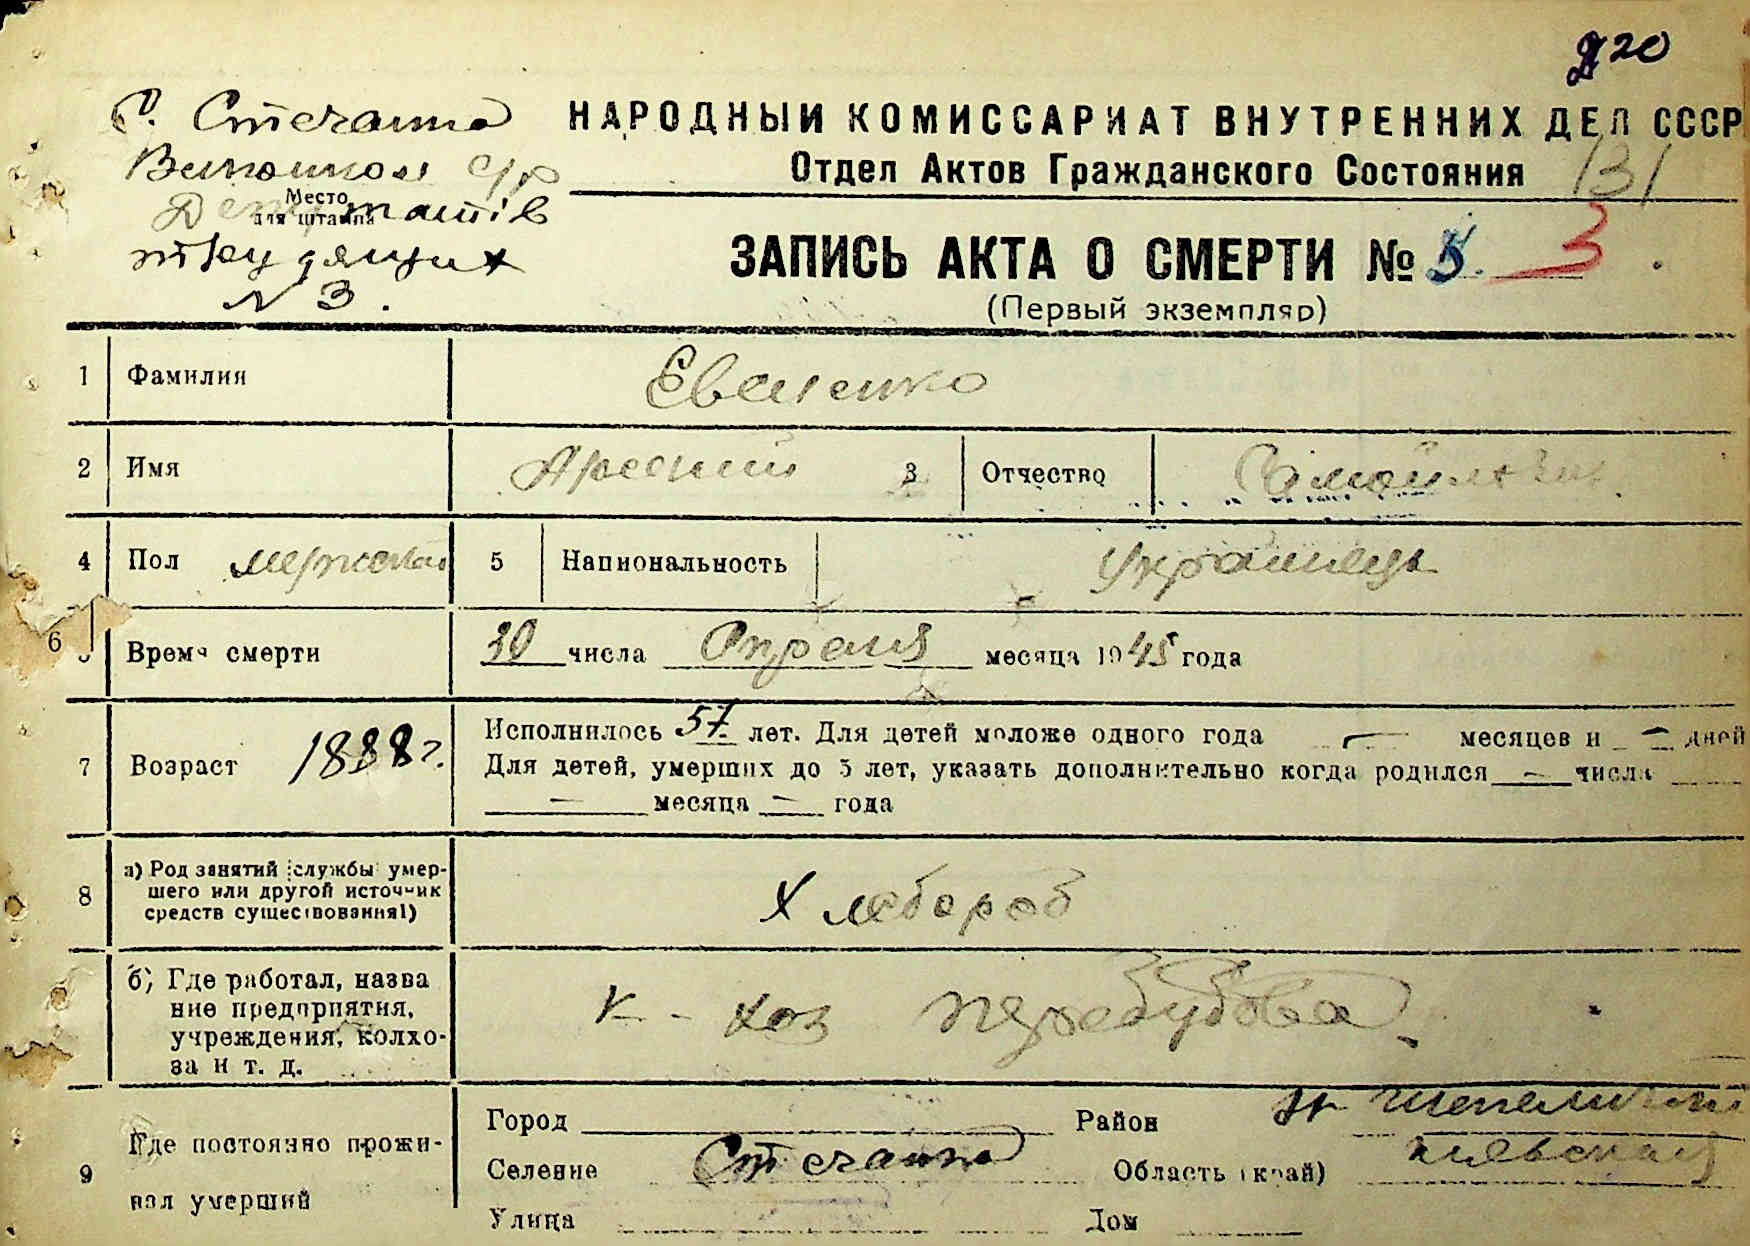 с. Стечанка
НАРОДНЫЙ КОМИССАРИАТ ВНУТРЕННИХ ДЕЛ СССР
Отдел Актов Гражданского Состояния
131
Место
для штампа
Депутатів
трудящих
N 3.
ЗАПИСЬ АКТА О СМЕРТИ № 3
(Первый экземпляр)
1 Фамилия Еваненко
2 Имя Арсений 3 Отчество Самойлович
4 Пол мужской 5 Национальность Українець
6 Время смерти 30 числа Апреля месяца 1945 года
7 Возраст 1888 г. Исполнилось 57 лет. Для детей моложе одного года — месяцев и — дней
Для детей, умерших до 5 лет, указать дополнительно когда родился — числа
— месяца — года
8 а) Род занятий службы умер-
шего или другой источник
средств существования1)
Хлебороб
б) Где работал, назва
ние предприятия,
учреждения, колхо-
за и т. д.
к-хоз перебудова
9 Где постоянно прожи-
вал умерший
Город Район
Селение Стечанка Область (край) Київская
Улица Дом